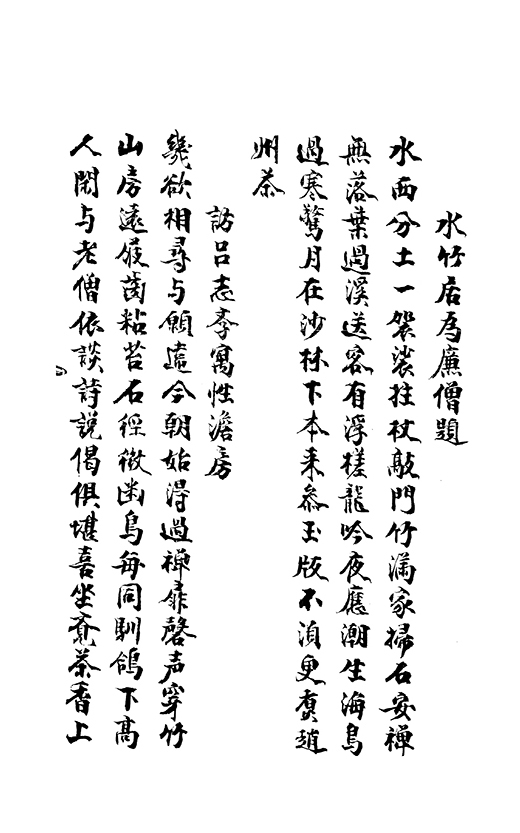 水竹居為廉僧題
水西分土一袈裟拄杖敲門竹滿家掃石安禪
無落葉過溪送客有浮槎龍吟夜應潮生海鳥
過寒驚月在沙林下本来參玉版不須更煑趙
州茶
訪吕志學寓性澹房
幾欲相尋与願違今朝始得過禅扉磬声穿竹
山房遠屐齒粘苔石徑微幽鳥每同馴鴿下高
人閑与老僧依談詩説偈俱堪喜坐覓茶香上